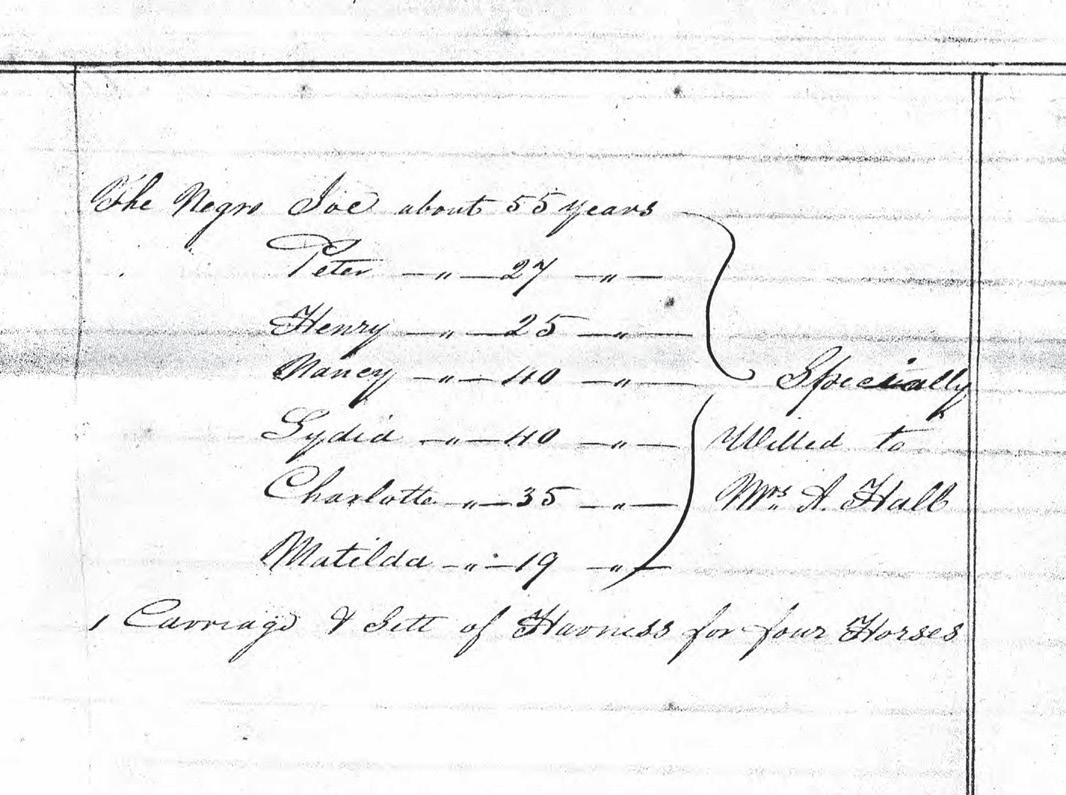 The Negro Joe about 55 years
Peter — " — 27 — " —
Henry — " — 25 — " —
Nancy — " — 40 — " — Specially
Lydia — " — 40 — " — Willed to
Charlotte — " — 35 — " — Mrs. A. Hall
Matilda — " — 19 — " —
1 Carriage & Sett of Harness for four Horses